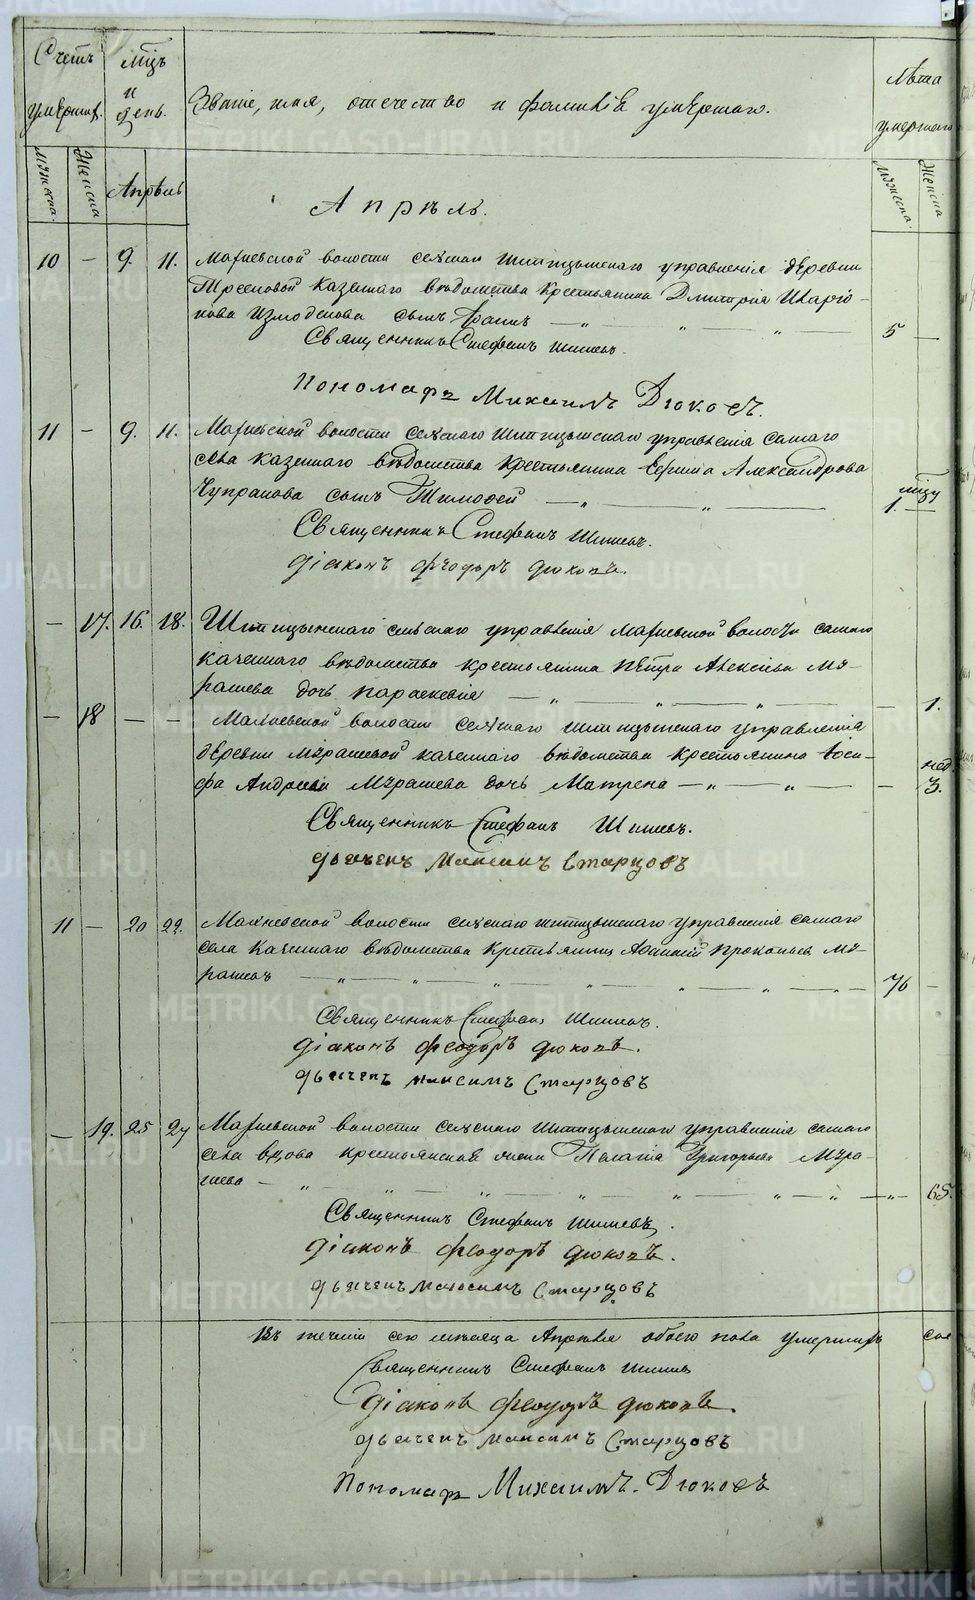 Счетъ умершихъ.
мѣсяцъ и день.
Званіе, имя, отечество и фамилія умершаго.
Лѣта умершаго
Мужеска.
Женска
Апрѣль
Мужеска.
Женска
Апрѣль.
10 — 9. 11. Махневской волости сельскаго Шипицынскаго управленія деревни
казеннаго вѣдомства крестьянина Димитрія Иларіо-
нова Измоденова сынъ — „ — „ — „ — 5 —
Священникъ Стефанъ Шишевъ.
Пономарь Михаилъ Дюковъ.
11 — 9. 11. Махневской волости сельскаго Шипицынскаго управленія самаго
села казеннаго вѣдомства крестьянина Ефима Александрова
Чупракова сынъ Тимофей — „ — „ — мѣсяцъ 1. —
Священникъ Стефанъ Шишевъ.
Діаконъ Феодоръ Дюковъ.
— 17. 16. 18. Шипицынскаго сельскаго управленія Махневской волости самаго
казеннаго вѣдомства крестьянина Петра Алексѣева Му-
рашева дочь Параскевія — „ — „ — „ — 1.
— 18 — — Махневской волости сельскаго Шипицынскаго управленія
деревни Мурашевой казеннаго вѣдомства крестьянина Іоси-
фа Андреева Мурашева дочь Матрена — „ — „ — — нед. 3.
Священникъ Стефанъ Шишевъ.
Дьячекъ Максимъ Старцовъ
11 — 20 22. Махневской волости сельскаго Шипицынскаго управленія самаго
села казеннаго вѣдомства крестьянинъ Прокопьевъ Му-
рашевъ — „ — „ — „ — „ — „ — „ — „ — 76 —
Священникъ Стефанъ Шишевъ.
Діаконъ Феодоръ Дюковъ.
Дьячекъ Максимъ Старцовъ
— 19. 25 27 Махневской волости сельскаго Шипицынскаго управленія самаго
села вдова крестьянская жена Пелагія Григорьева Мура-
шева — „ — „ — „ — „ — „ — „ — „ — „ — 65.
Священникъ Стефанъ Шишевъ.
Діаконъ Феодоръ Дюковъ.
Дьячекъ Максимъ Старцовъ
Въ теченіи сего мѣсяца Апрѣля обоего пола умершихъ
Священникъ Стефанъ Шишевъ
Діаконъ Феодоръ Дюковъ.
Дьячекъ Максимъ Старцовъ
Пономарь Михаилъ Дюковъ
METRIKI.GASO-URAL.RU